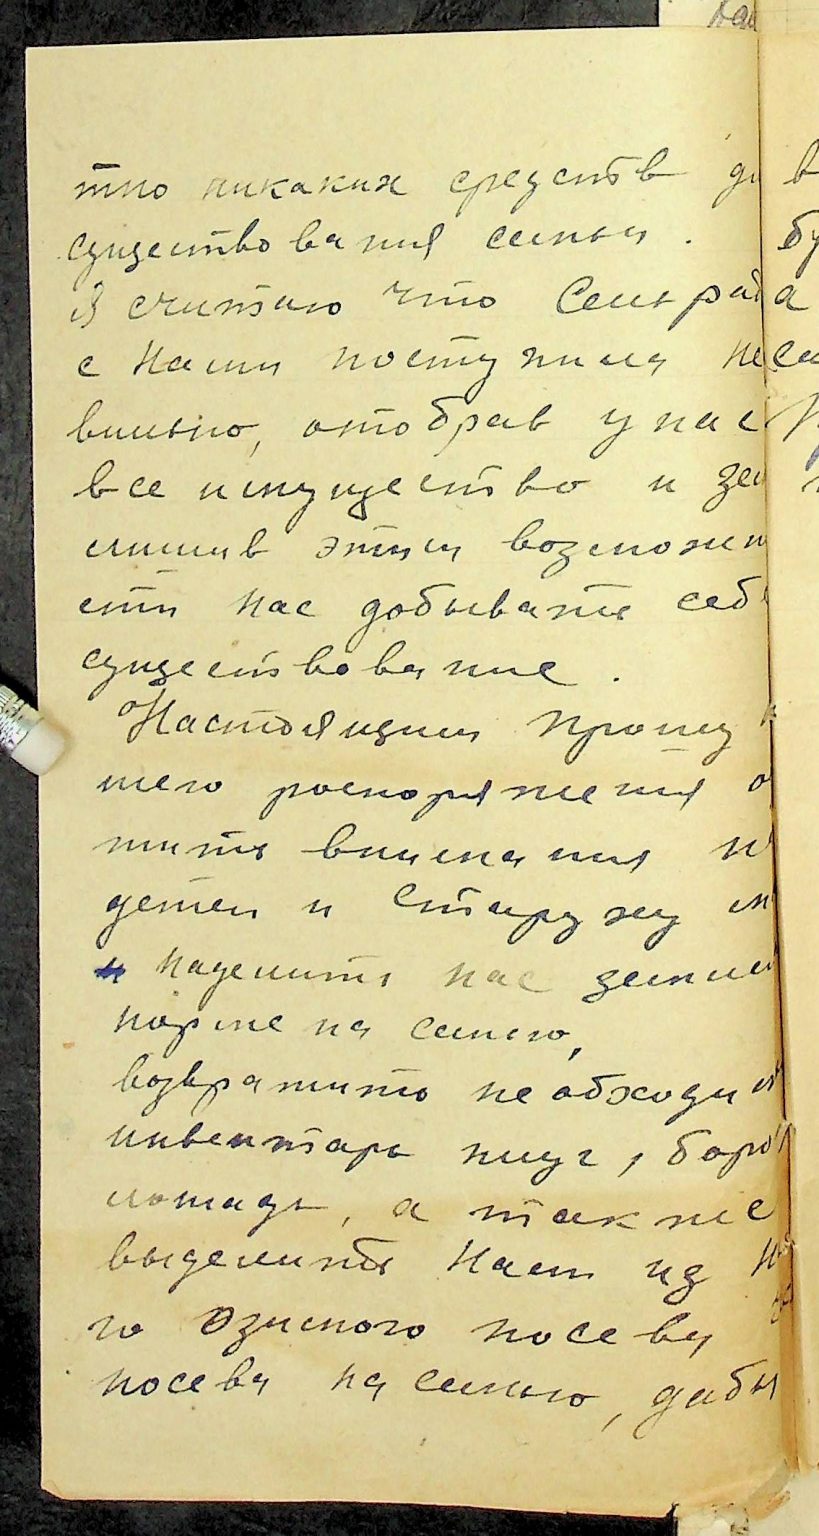 тно никаких средств дл
существования семьи.
Я считаю что Сельрад
с нами поступила не
вильно, отобрав у нас
все имущество и зем
лишив этим возможно
сти нас добывать себе
существование.
Настоящим прошу
шего роспоряжения о
тить внимания н
детей и старуху м
наделить нас землей
норме на семью,
возвратить необходим
инвентарь плуг, боро
лошадь, а так же
выделить нам из на
го озимого посева
посева на семью, дабы